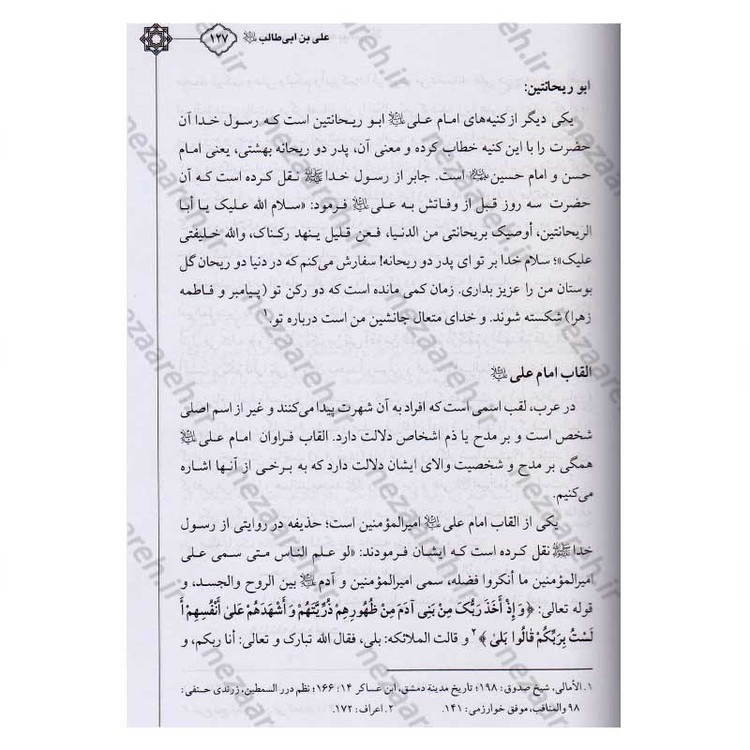 علی بن ابی‌طالب علیه‌السلام ۱۲۷
ابو ریحانتین:
یکی دیگر از کنیه‌های امام علی علیه‌السلام ابو ریحانتین است که رسول خدا آن
حضرت را با این کنیه خطاب کرده و معنی آن، پدر دو ریحانه بهشتی، یعنی امام
حسن و امام حسین است. جابر از رسول خدا نقل کرده است که آن
حضرت سه روز قبل از وفاتش به علی علیه‌السلام فرمود: «سلام الله علیک یا أبا
الریحانتین، أوصیک بریحانتی من الدنیا، فعن قلیل ینهد رکناک، والله خلیفتی
علیک»؛ سلام خدا بر تو ای پدر دو ریحانه! سفارش می‌کنم که در دنیا دو ریحان گل
بوستان من را عزیز بداری. زمان کمی مانده است که دو رکن تو (پیامبر و فاطمه
زهرا) شکسته شوند. و خدای متعال جانشین من است درباره تو.۱
القاب امام علی علیه‌السلام
در عرب، لقب اسمی است که افراد به آن شهرت پیدا می‌کنند و غیر از اسم اصلی
شخص است و بر مدح یا ذم اشخاص دلالت دارد. القاب فراوان امام علی علیه‌السلام
همگی بر مدح و شخصیت والای ایشان دلالت دارد که به برخی از آنها اشاره
می‌کنیم.
یکی از القاب امام علی علیه‌السلام امیرالمؤمنین است؛ حذیفه در روایتی از رسول
خدا نقل کرده است که ایشان فرمودند: «لو علم الناس متی سمی علی
امیرالمؤمنین ما أنکروا فضله، سمی امیرالمؤمنین و آدم بین الروح والجسد، و
قوله تعالی: ﴿وَ إِذْ أَخَذَ رَبُّکَ مِنْ بَنِی آدَمَ مِنْ ظُهُورِهِمْ ذُرِّیَّتَهُمْ وَ أَشْهَدَهُمْ عَلیٰ أَنْفُسِهِمْ أَ
لَسْتُ بِرَبِّکُمْ قٰالُوا بَلیٰ﴾۲ و قالت الملائکه: بلی، فقال الله تبارک و تعالی: أنا ربکم، و
۱. الأمالی، شیخ صدوق: ۱۹۸؛ تاریخ مدینة دمشق، ابن عساکر ۱۴: ۱۶۶؛ نظم درر السمطین، زرندی حنفی:
۹۸ والمناقب، موفق خوارزمی: ۱۴۱. ۲. اعراف: ۱۷۲.
nezaareh.ir